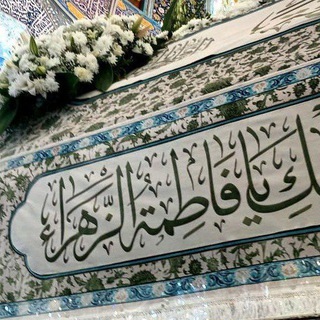 يا فاطِمَةُ الزَّهراءُ